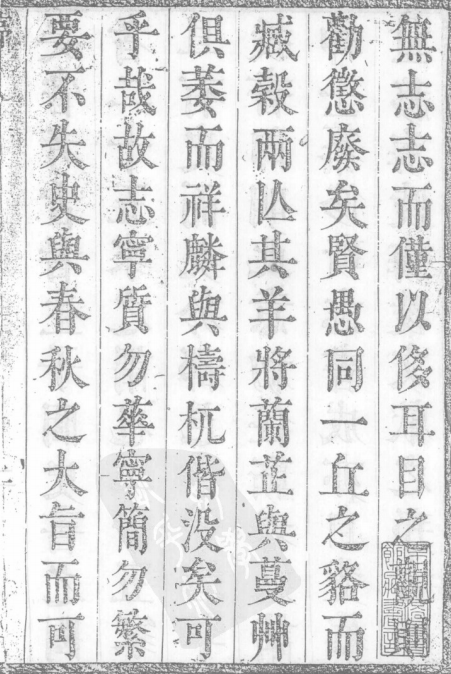 無志志而僅以侈耳目之觀則
勸懲廢矣賢愚同一丘之貉而
臧穀兩亾其羊將蘭茝與蔓艸
俱萎而祥麟與檮杌偕没矣可
乎哉故志寧質勿華寧簡勿繁
要不失史與春秋之大旨而可